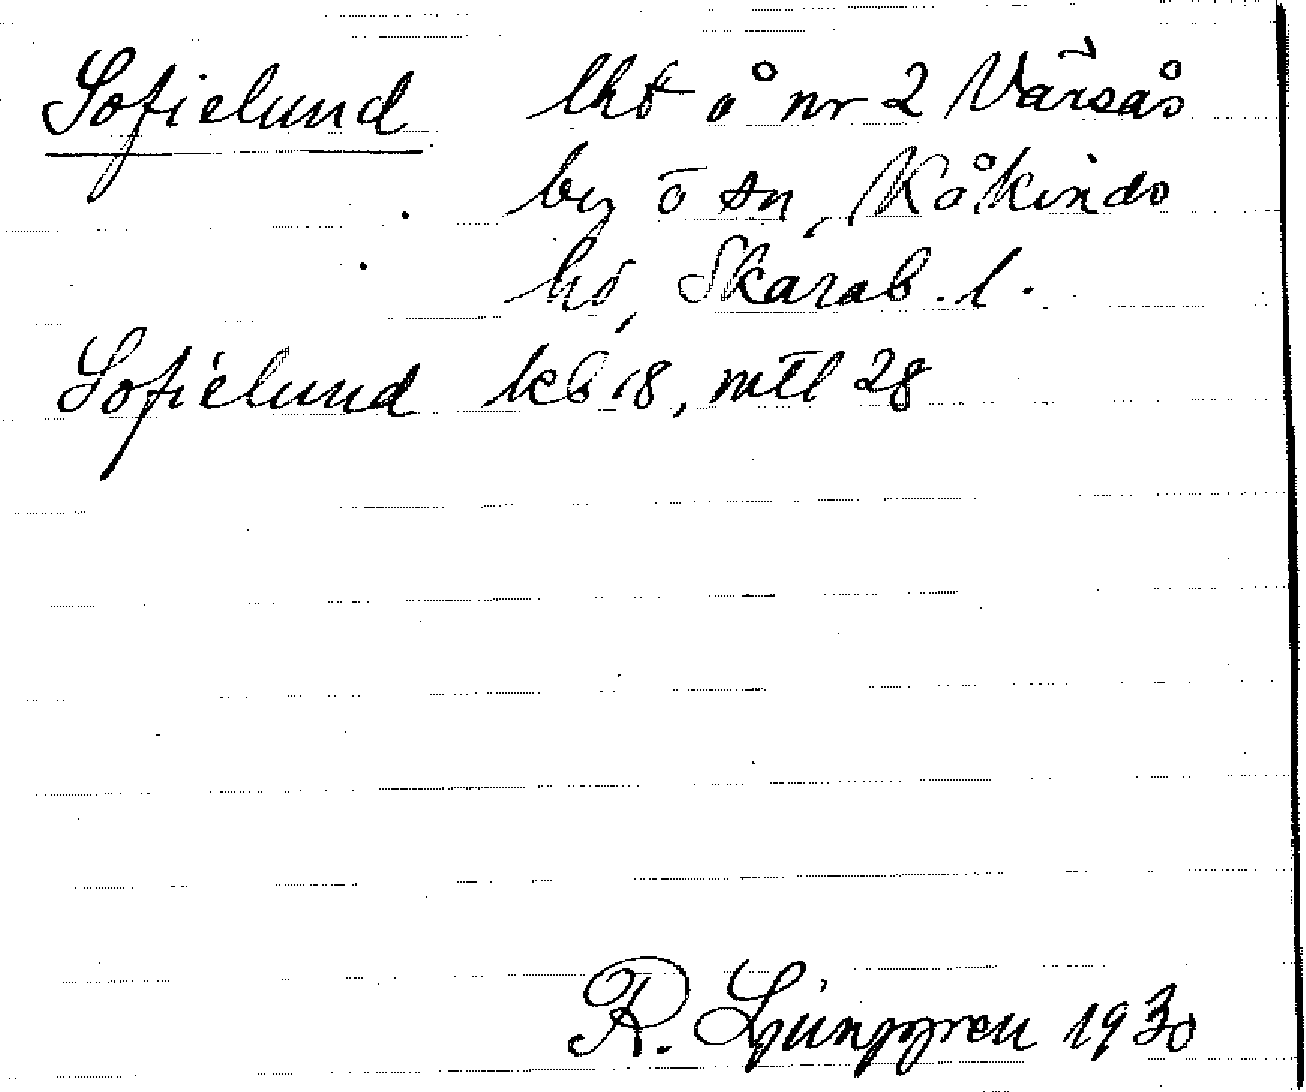 Sofielund lht å nr 2 Värsås
by o sn, Kåkinds
hd, Skarab. l.
Sofielund kb 18, mtl 28
R. Ljunggren 1930